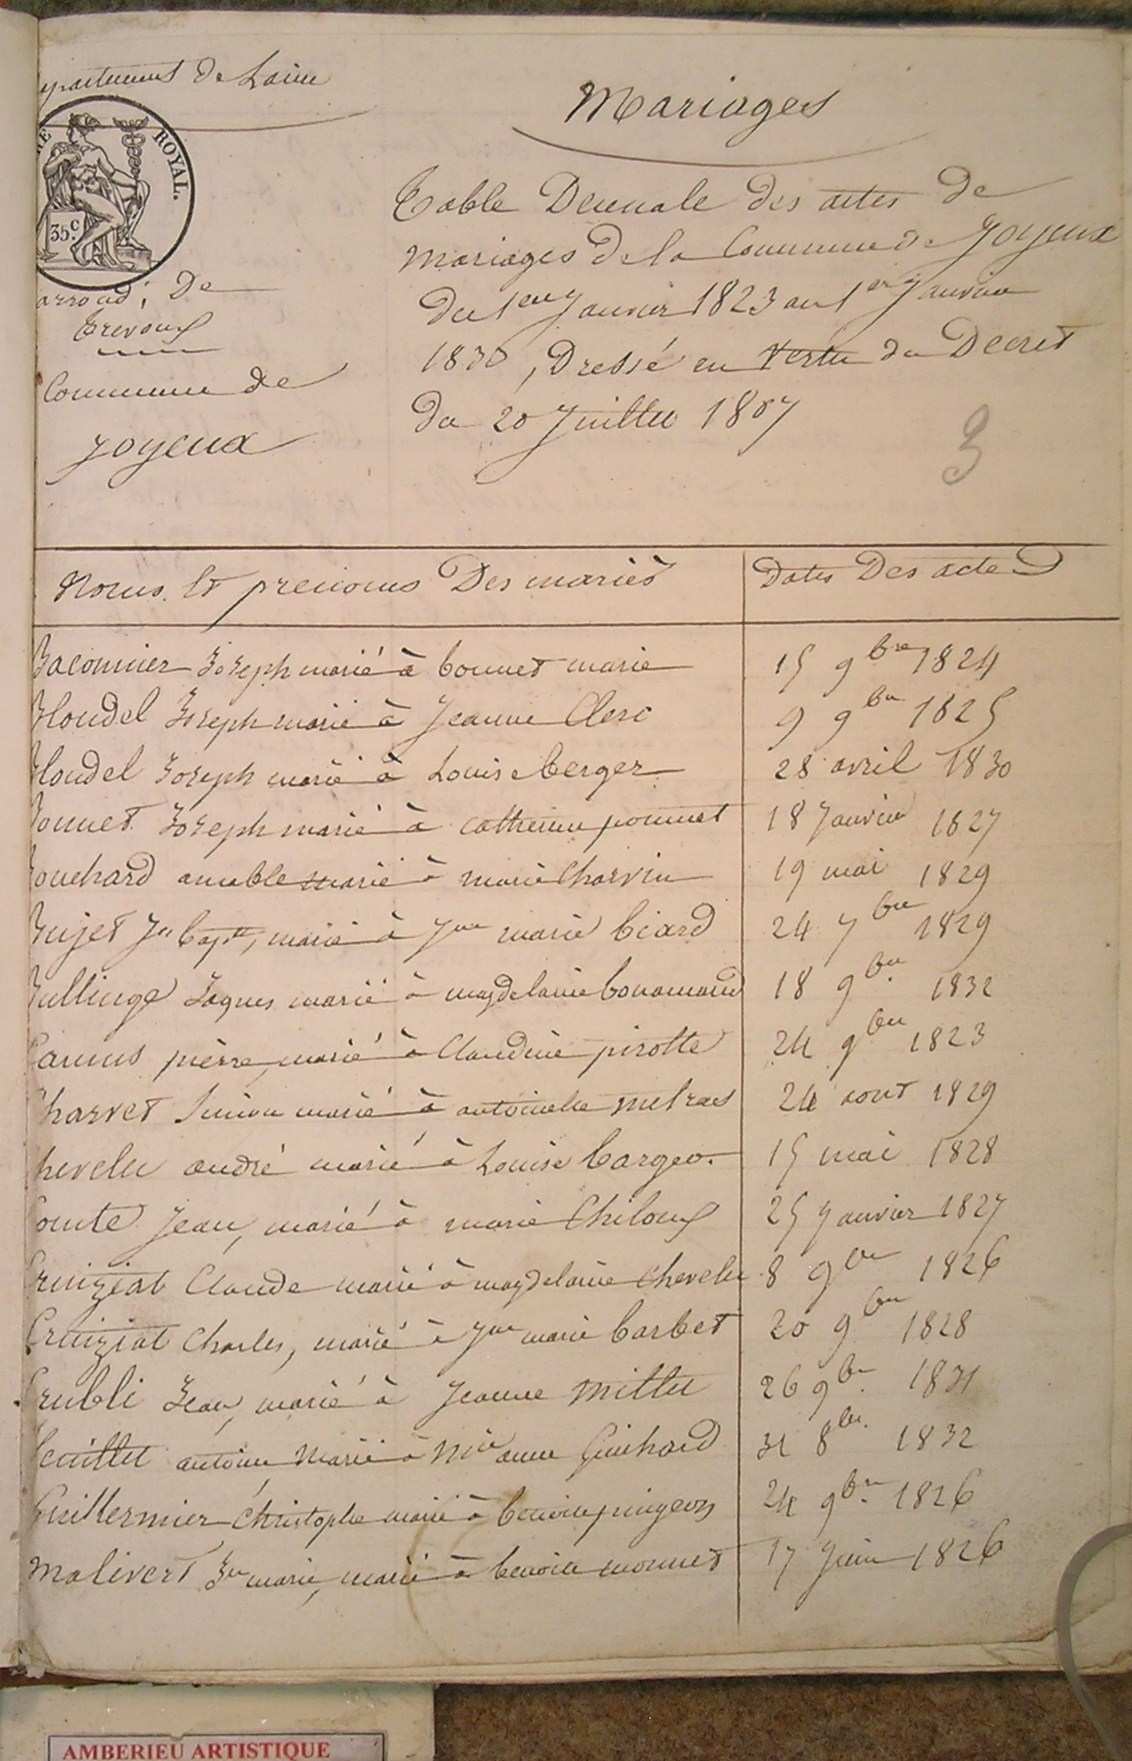 epartement de Laine
RE ROYAL.
35 c.
arrond.t De
Trevoux
Commune de
Joyeux
Mariages
Table Decenale des actes de
Mariages de la Commune de Joyeux
du 1er Janvier 1823 au 1er Janvier
1830, Dressé en Vertu du Decret
du 20 Juillet 1807
3
Noms et prenoms Des mariés
Dates Des actes
Baconnier Joseph marié à bonnet marie 15 9bre 1824
Blondel Joseph marié à Jeanne Clerc 9 9bre 1825
Blondel Joseph marié à Louise berger 28 avril 1830
Bonnet Joseph marié à catherine pommet 18 Janvier 1827
Bouchard amable marié à marie Charvin 19 mai 1829
Bujet Jn bapte, marié à Jne marie biard 24 7bre 1829
Bullinge Jaques marié à magdelaine bonamand 18 9bre 1832
Camus pierre, marié à Claudine pirotte 24 9bre 1823
Charvet Simon marié à antoinette metras 24 aout 1829
hevelu andré marié à Louise bargeo. 15 mai 1828
Comte Jean, marié à marie Chiloux 25 Janvier 1827
Cruiziat Claude marié à magdelaine chevelu 8 9bre 1826
Cruiziat Charles, marié à Jne marie barbet 20 9bre 1828
Crubli Jean, marié à Jeanne millet 26 9bre 1831
feuillet antoine marié à Mie anne Guichard 31 8bre. 1832
Guillermier christophe marié à benoite pingeon 24 9bre. 1826
Malivert Jn marie, marié à benoite monnet 17 Juin 1826
AMBERIEU ARTISTIQUE